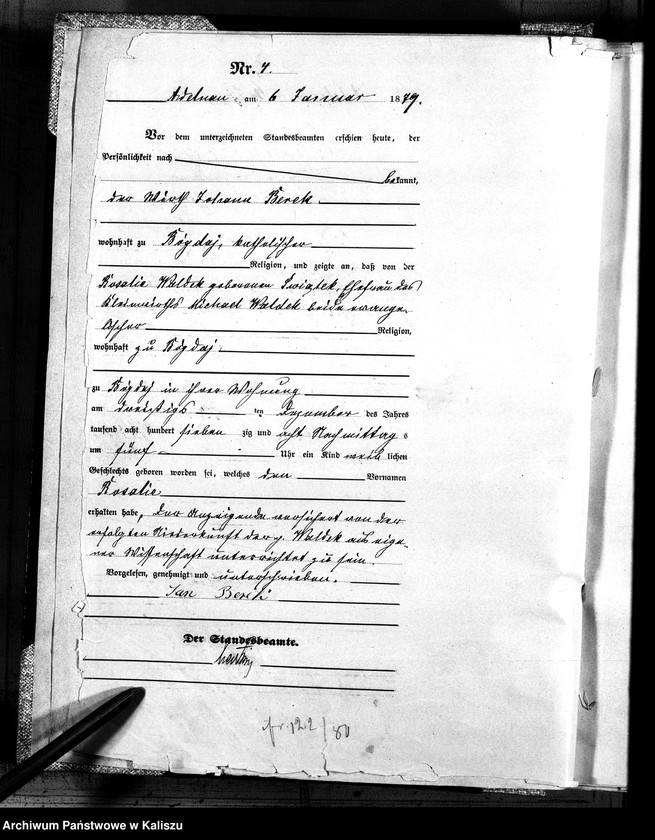 Nr. 4.
Adelnau am 6 Januar 1879.
Vor dem unterzeichneten Standesbeamten erschien heute, der
Persönlichkeit nach
bekannt,
der Wirth Johann Berek
wohnhaft zu Bogdaj, katholischer
Religion, und zeigte an, daß von der
Rosalie Waldek geborenen Swiątek, Ehefrau des
Kleinwirths Michael Waldek beide evange-
lischer Religion,
wohnhaft zu Bogdaj
zu Bogdaj in ihrer Wohnung
am dreißigs ten Dezember des Jahres
tausend acht hundert sieben zig und acht Nachmittag s
um fünf Uhr ein Kind weib lichen
Geschlechts geboren worden sei, welches den Vornamen
Rosalie
erhalten habe, der Anzeigende versichert von der
erfolgten Niederkunft der p. Waldek aus eige-
ner Wissenschaft unterrichtet zu sein.
Vorgelesen, genehmigt und unterschrieben.
Jan Berek
Der Standesbeamte.
122/80
Archiwum Państwowe w Kaliszu